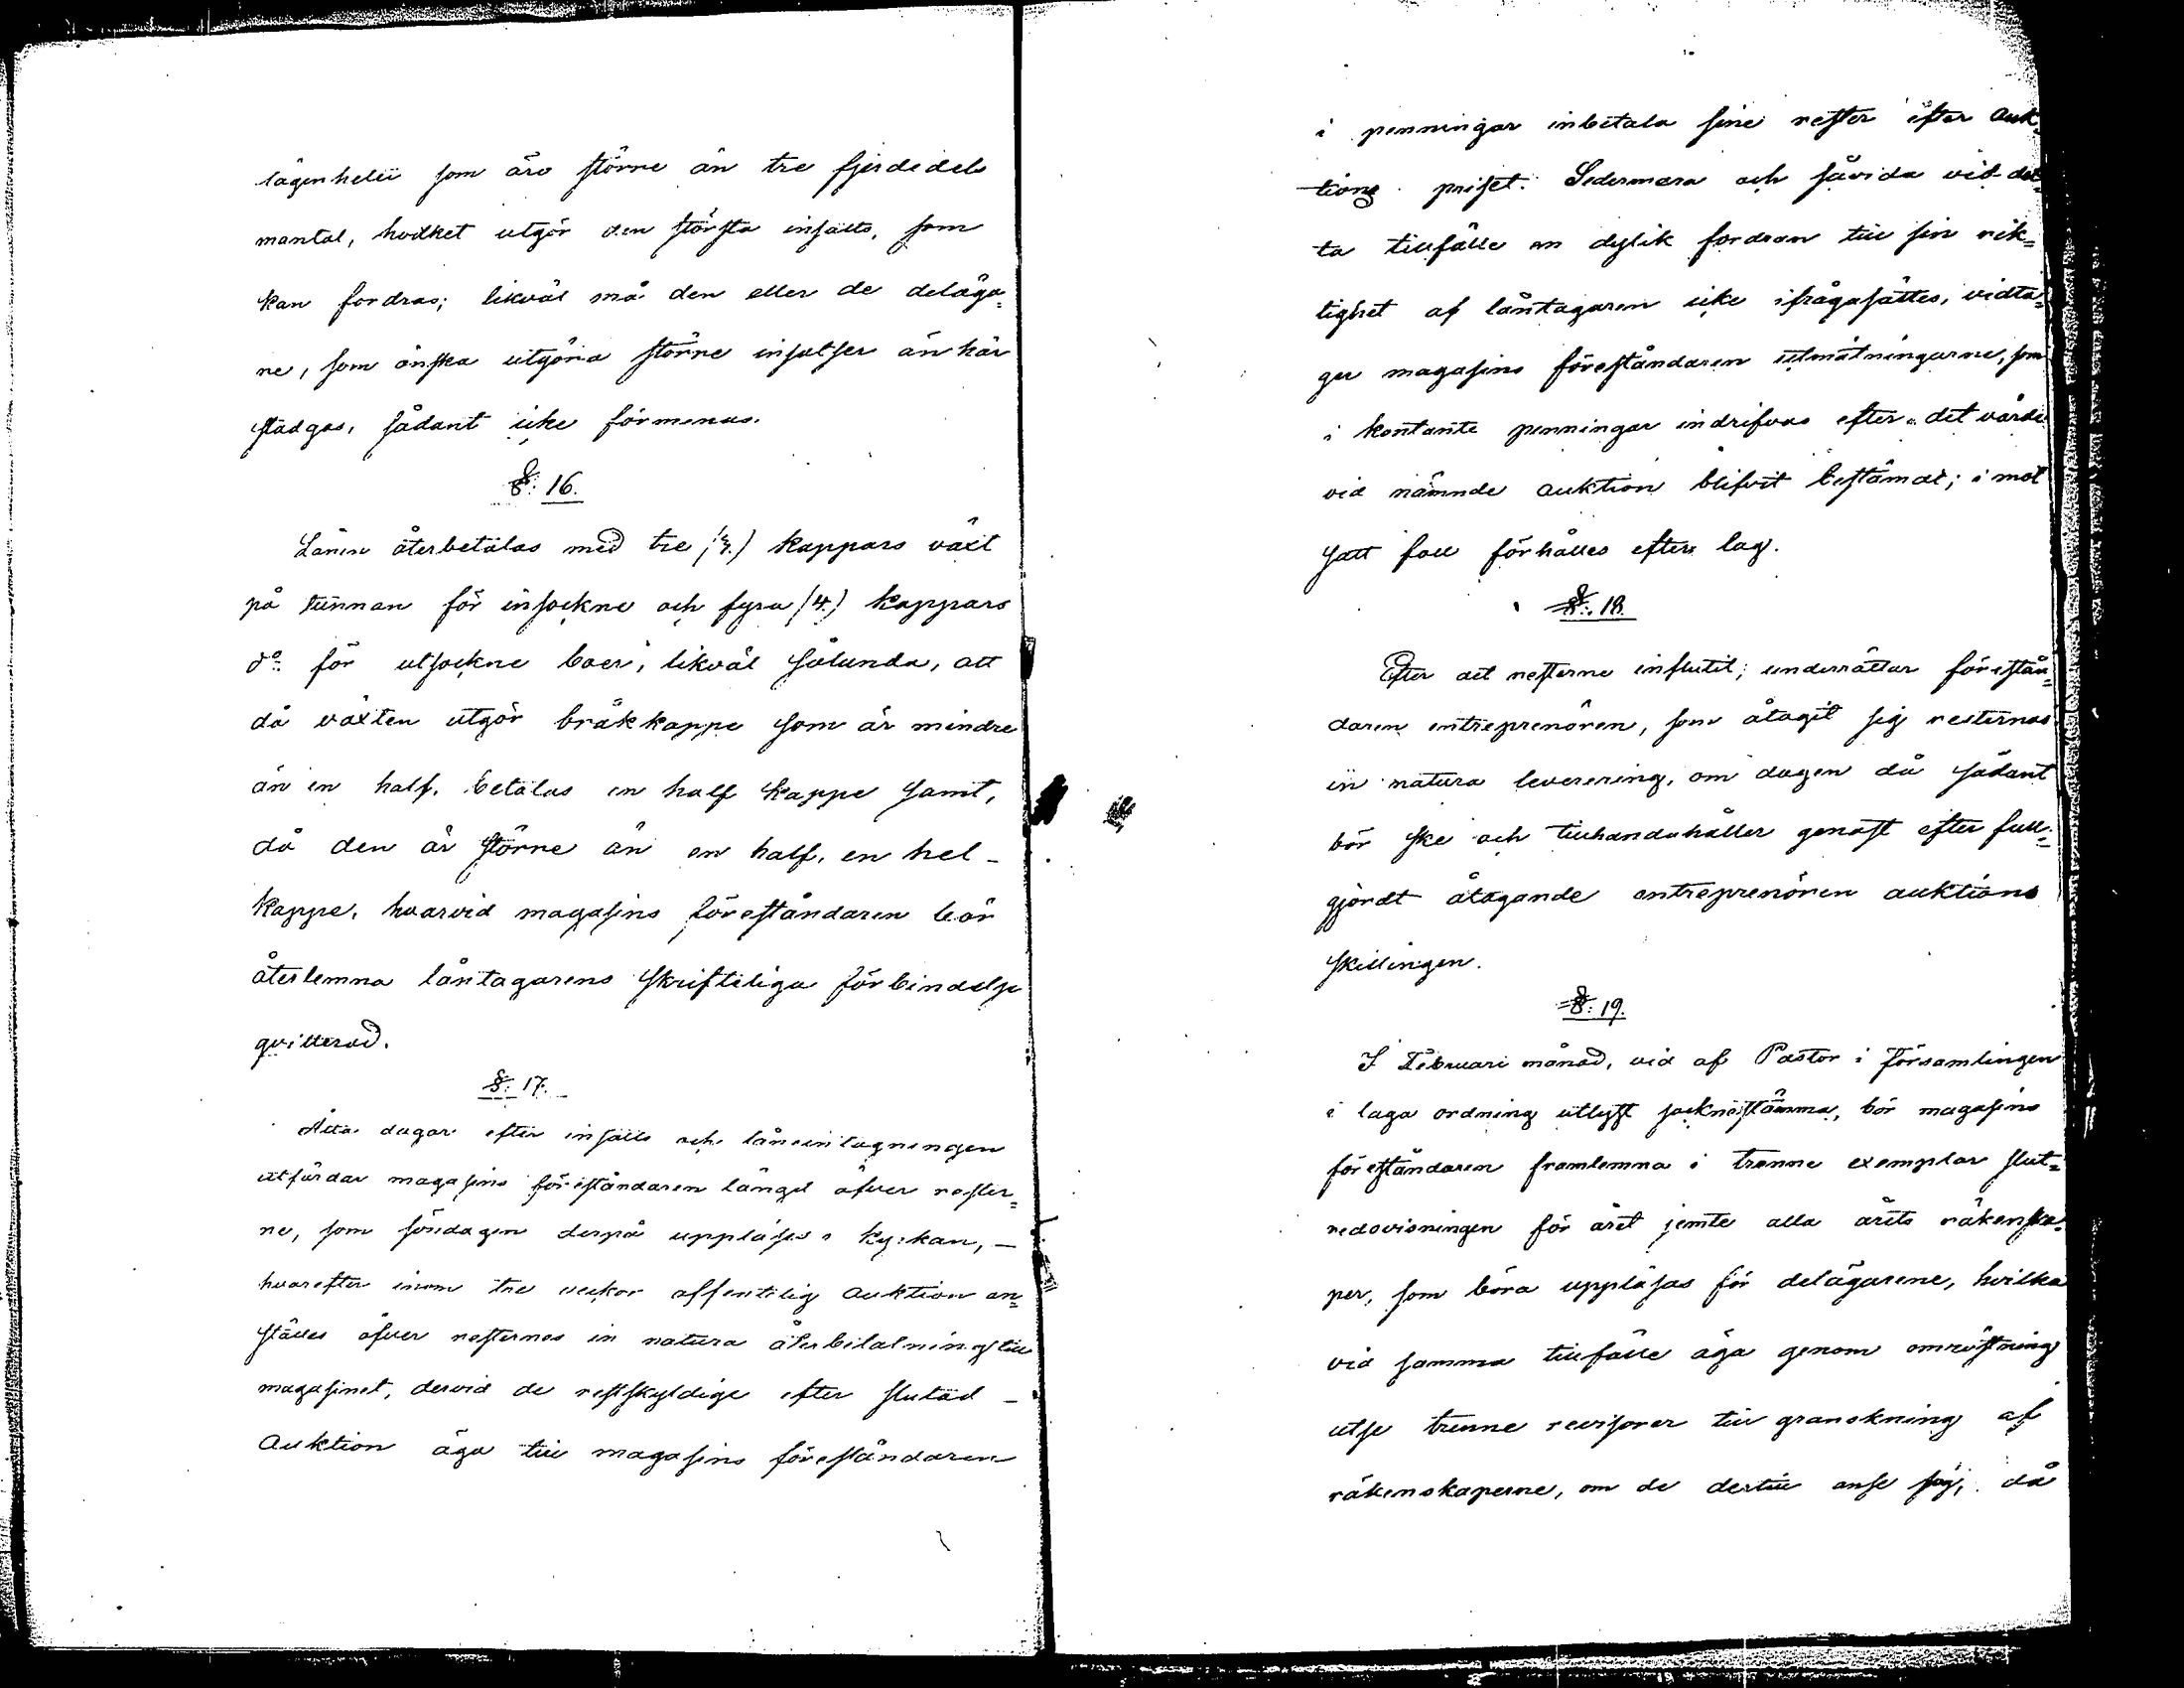 lägenheter som äro större än tre fjerdedels
mantal, hvilket utgör den största insatts, som
kan fordras; likväl må den eller de deläga¬
re, som önska utgöra större insatser än här
stadgas, sådant icke förmenas.
§: 16.
Lånen återbetalas med tre (3.) kappars växt
på tunnan för insockne och fyra (4.) kappars
do: för utsockne boer, likväl sålunda, att
då växten utgör bråkkappe som är mindre
än en half, betalas en half kappe samt,
då den är större än en half, en hel –
kappe, hvarvid magasins föreståndaren bör
återlemna låntagarens skriftliga förbindelse
qvitterad.
§: 17.
Åtta dagar efter insätts och låneintagningen
utfärdar magasins föreståndaren längd öfver rester¬
ne, som söndagen derpå uppläses i kyrkan, –
hvarefter inom tre veckor offentelig auktion an¬
ställes öfver resternas in natura återbetalning till
magasinet, dervid de restskyldige efter slutad –
auktion äga till magasins föreståndaren
i penningar inbetala sine rester efter auk¬
tions priset. Sedermera och såvida vid det¬
ta tillfälle en dylik fordran till sin rik¬
tighet af låntagaren icke ifrågasättes, vidta¬
ger magasins föreståndaren utmätningarne, som
i kontante penningar indrifvas efter det värde
vid nämnde auktion blifvit bestämdt; i mot
satt fall förhålles efter lag.
§: 18.
Efter det resterne influtit, underrättar förestån¬
daren entreprenören, som åtagit sig resternas
in natura leverering, om dagen då sådant
bör ske och tillhandahåller genast efter full¬
gjordt åtagande entreprenören auktions
skillingen.
§: 19.
I Februari månad, vid af Pastor i församlingen
i laga ordning utlyst socknestämma, bör magasins
föreståndaren framlemna i trenne exemplar slut¬
redovisningen för året jemte alla årets räkenska¬
per, som böra uppläsas för delägarene, hvilka
vid samma tillfälle äga genom omröstning
utse trenne revisorer till granskning af
räkenskaperne, om de dertill anse sig, då